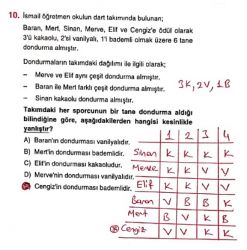 10. İsmail öğretmen okulun dart takımında bulunan;
Baran, Mert, Sinan, Merve, Elif ve Cengiz'e ödül olarak
3'ü kakaolu, 2'si vanilyalı, 1'i bademli olmak üzere 6 tane
dondurma almıştır.
Dondurmaların takımdaki dağılımı ile ilgili olarak;
– Merve ve Elif aynı çeşit dondurma almıştır.
– Baran ile Mert farklı çeşit dondurma almıştır.
– Sinan kakaolu dondurma almıştır.
3K, 2V, 1B
Takımdaki her sporcunun bir tane dondurma aldığı
bilindiğine göre, aşağıdakilerden hangisi kesinlikle
yanlıştır?
A) Baran'ın dondurması vanilyalıdır.
B) Mert'in dondurması vanilyalıdır.
C) Elif'in dondurması kakaoludur.
D) Merve'nin dondurması vanilyalıdır.
E) Cengiz'in dondurması bademlidir.
1 2 3 4
Sinan K K K K
Merve K K V V
Elif K K V V
Baran V B B K
Mert B V K B
Cengiz V V K K